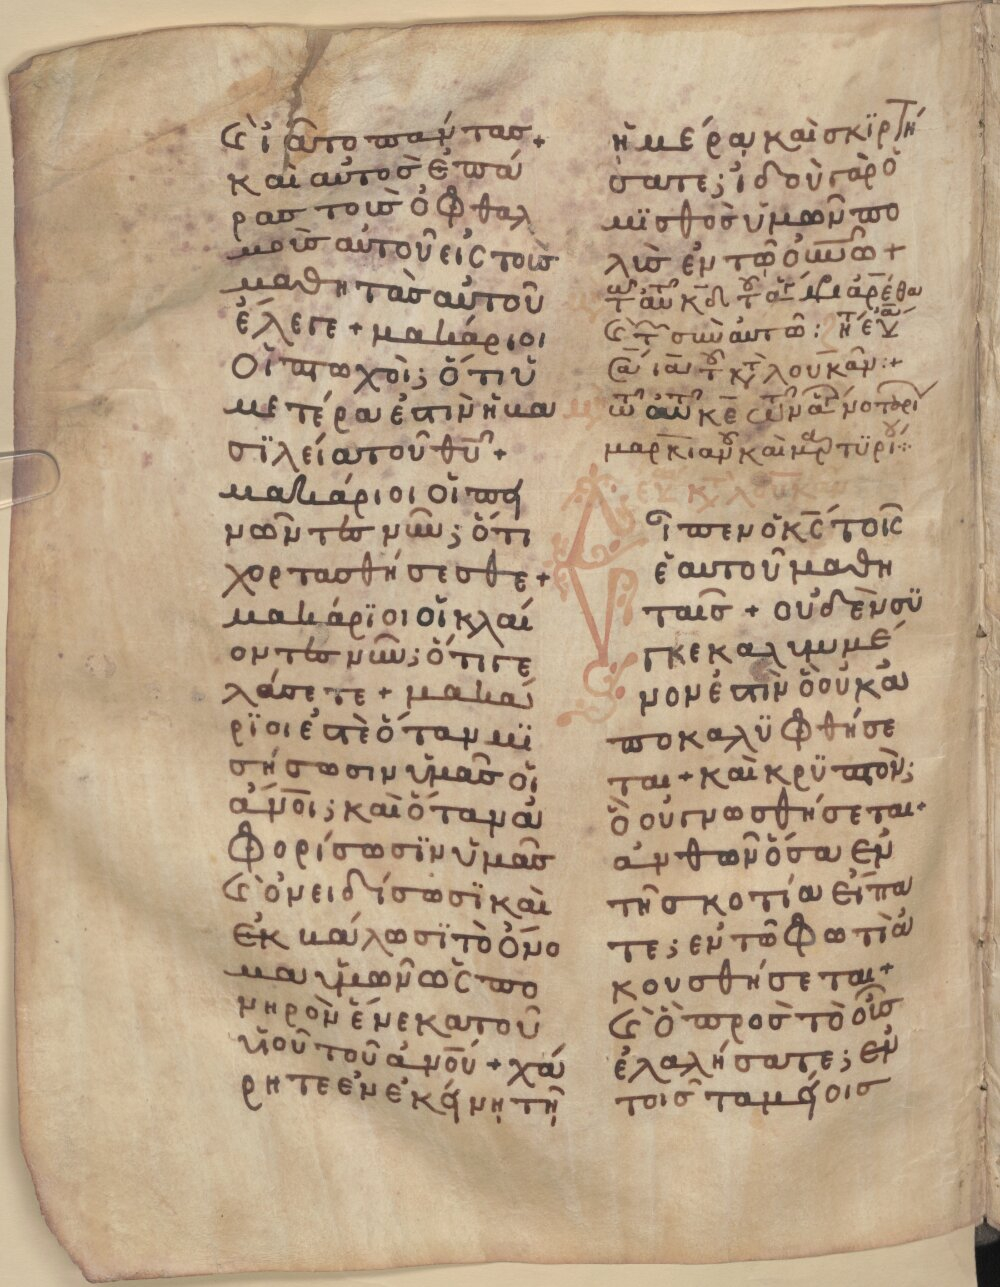 καὶ ἰᾶτο πάντας +
καὶ αὐτὸς ἐπά
ρας τοὺς ὀφθαλ
μοὺς αὐτοῦ εἰς τοὺς
μαθητὰς αὐτοῦ
ἔλεγε + μακάριοι
οἱ πτωχοὶ; ὅτι ὑ
μετέρα ἐστὶν ἡ βα
σϊλεία τοῦ θῦ +
μακάριοι οἱ πει
νῶντες νῦν; ὅτι
χορτασθήσεσθε +
μακάριοι οἱ κλαί
οντες νῦν; ὅτι γε
λάσετε + μακά
ρϊοι ἐστὲ ὅταν μϊ
σήσωσιν ὑμᾶς οἱ
ἄνοι; καὶ ὅταν ἀ
φορίσωσϊν ὑμᾶς
καὶ ὀνειδίσωσϊ καὶ
ἐκβάλωσϊ τὸ ὄνο
μα ὑμῶν ὡς πο
νηρὸν ἕνεκα τοῦ
υἱοῦ τοῦ ἀνοῦ + χά
ρητε ἐν ἐκείνῃ τῇ
ἡμέρᾳ καὶ σκϊρτή
σατε; ἰδοὺ γὰρ ὁ
μϊσθὸς ὑμῶν πο
λὺς ἐν τῶ οὐνῶ +
ἀρέθα
σὺν αὐτῶ:
λουκᾶν:+
μαρκιανοῦ καὶ μαρτϋρίου:
εὐ κτ λουκαν
Εἶπεν ὁ κς τοῖς
ἑαυτοῦ μαθη
ταῖς + οὐδὲν συ
γκεκαλυμμέ
νον ἐστὶν ὃ οὐκ ἀ
ποκαλϋφθήσε
ται + καὶ κρϋπτὸν;
ὃ οὐ γνωσθήσεται +
ἀνθ ὧν ὅσα ἐν
τῇ σκοτία εἴπα
τε; ἐν τῶ φωτὶ ἀ
κουσθήσεται +
καὶ ὃ πρὸς τὸ οὖς
ἐλαλήσατε; ἐν
τοῖς ταμείοις